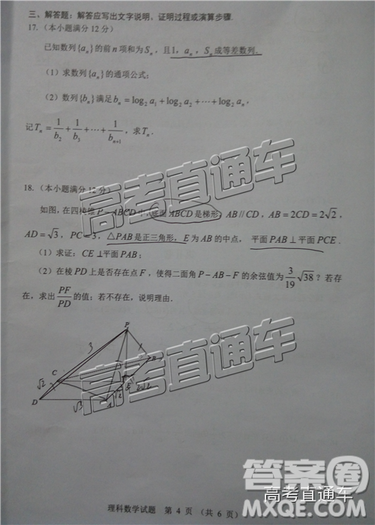 三、解答题：解答应写出文字说明、证明过程或演算步骤.
17.（本小题满分 12 分）
已知数列{aₙ}的前 n 项和为 Sₙ，且 1，aₙ，Sₙ 成等差数列.
（1）求数列{aₙ}的通项公式；
（2）数列{bₙ}满足 bₙ = log₂ a₁ + log₂ a₂ + ⋯ + log₂ aₙ，
记 Tₙ = 1/b₂ + 1/b₃ + ⋯ + 1/bₙ₊₁，求 Tₙ.
18.（本小题满分 12 分）
如图，在四棱锥 P－ABCD 中，底面 ABCD 是梯形，AB // CD，AB = 2CD = 2√2，
AD = √3，PC = 3，△PAB 是正三角形，E 为 AB 的中点，平面 PAB ⊥ 平面 PCE.
（1）求证：CE ⊥ 平面 PAB；
（2）在棱 PD 上是否存在点 F，使得二面角 P－AB－F 的余弦值为 3/19 √38？若存
在，求出 PF/PD 的值；若不存在，说明理由.
P
3
C
√2
D
√3
A
高考直通车
高考直通车
答案圈
高考直通车
理科数学试题 第 4 页（共 6 页）